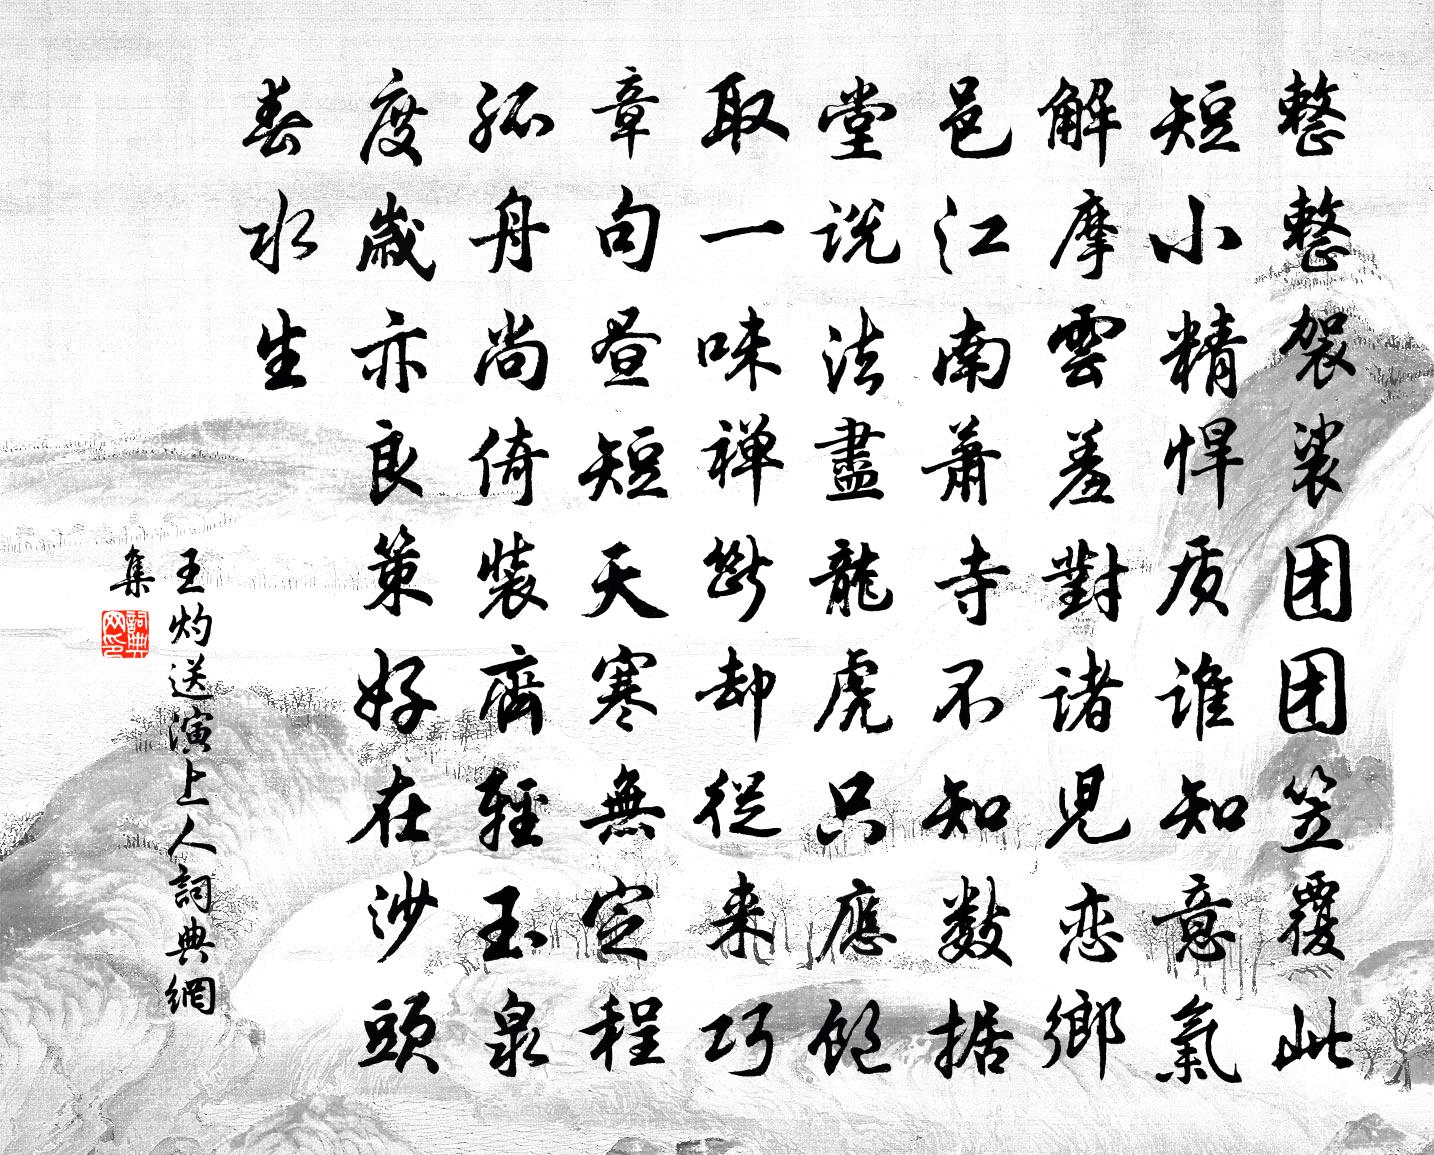 整整袈裟团团笠覆此
短小精悍质谁知意氣
解摩雲羞對诸児恋鄉
邑江南萧寺不知數据
堂说法盡龍虎只應飽
取一味禅斷却從来巧
章句昼短天寒無定程
孤舟尚倚裝齊輕玉泉
度歲亦良策好在沙頭
春水生
王灼送演上人詞典網
集
詞典網印